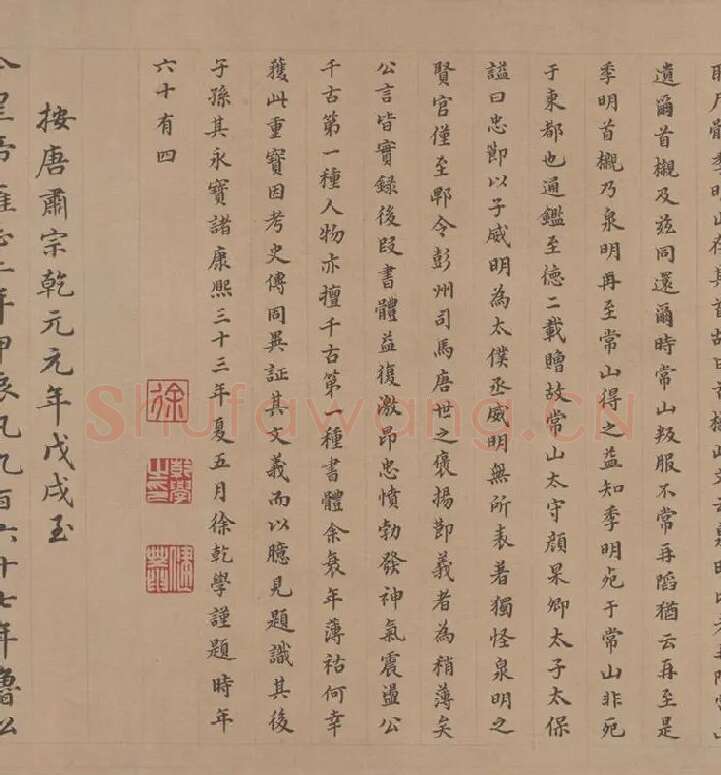 遺爾首櫬及茲同還爾時常山叛服不常再陷猶云再至是
季明首櫬乃泉明再至常山得之益知季明死于常山非死
于東都也通鑑至德二載贈故常山太守顏杲卿太子太保
諡曰忠節以子威明為太僕丞威明無所表著獨怪泉明之
賢官僅至郫令彭州司馬唐世之褒揚節義者為稍薄矣
公言皆實錄後段書體益復激昂忠憤勃發神氣震盪公
千古第一種人物亦擅千古第一種書體余衰年薄祜何幸
獲此重寶因考史傳同異証其文義而以臆見題識其後
子孫其永寶諸康熙三十三年夏五月徐乾學謹題時年
六十有四
徐
乾學之印
按唐肅宗乾元元年戊戌至
年甲辰凡九百六十七年魯公
Shufawang.CN